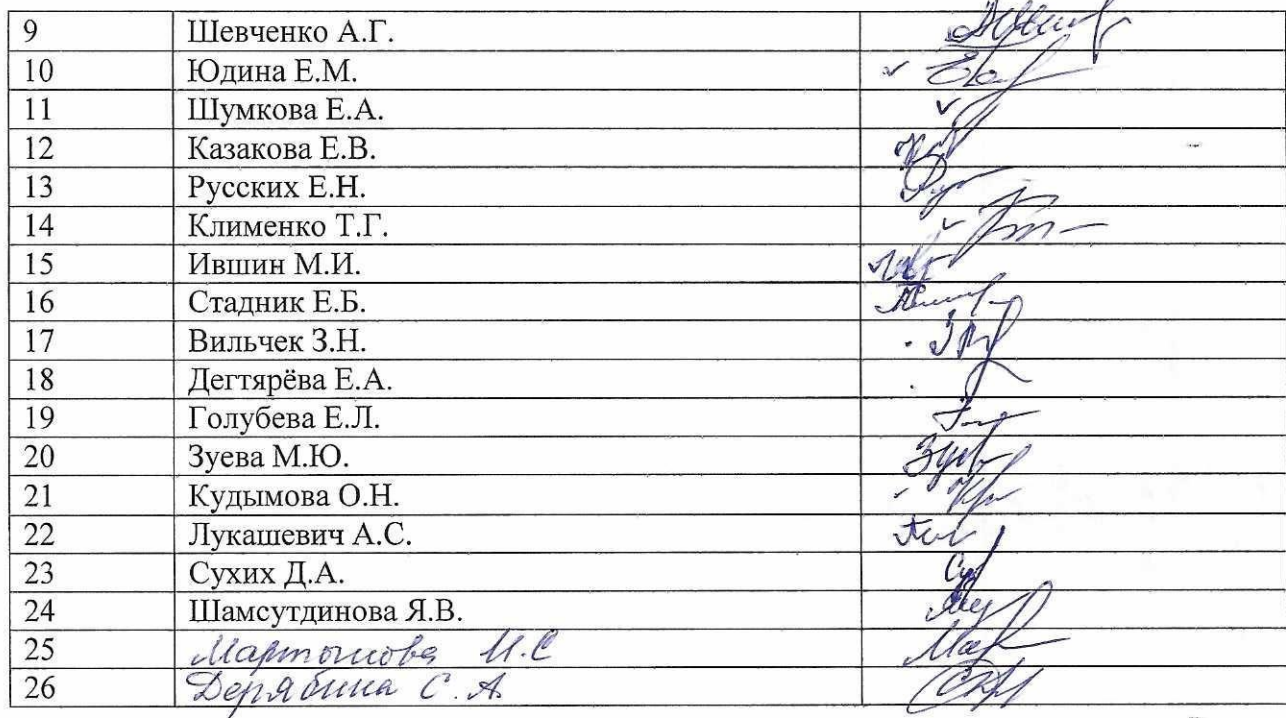 9 Шевченко А.Г.
10 Юдина Е.М.
11 Шумкова Е.А.
12 Казакова Е.В.
13 Русских Е.Н.
14 Клименко Т.Г.
15 Ившин М.И.
16 Стадник Е.Б.
17 Вильчек З.Н.
18 Дегтярёва Е.А.
19 Голубева Е.Л.
20 Зуева М.Ю.
21 Кудымова О.Н.
22 Лукашевич А.С.
23 Сухих Д.А.
24 Шамсутдинова Я.В.
25 Мартынова И.С
26 Дерябина С.А